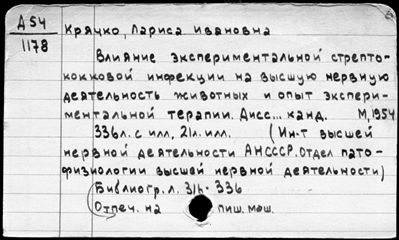 Д 54
1178
Крячко, Лариса Ивановна
Влияние экспериментальной стрепто-
кокковой инфекции на высшую нервную
деятельность животных и опыт экспери-
ментальной терапии. Дисс... канд. М, 1954
336л. с илл, 21л. илл. (Ин-т высшей
нервной деятельности АНСССР. Отдел пато-
физиологии высшей нервной деятельности)
Библиогр. л. 336
Отпеч. на пиш. маш.